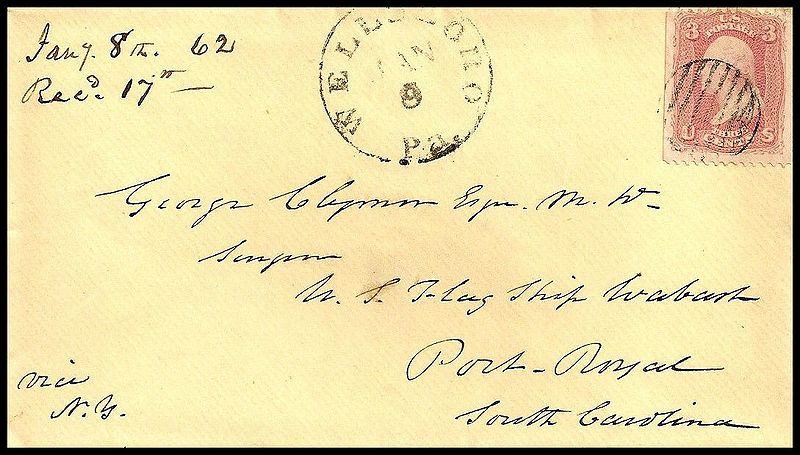 Jany. 8th. 62
Recd. 17th —
WELLSBORO
JAN
8
Pa.
3 U.S. 3
POSTAGE
U THREE S
CENTS
George Clymer Esqr. M. D-
Surgeon
U. S. Flag Ship Wabash
Port-Royal
South Carolina
via
N.Y.